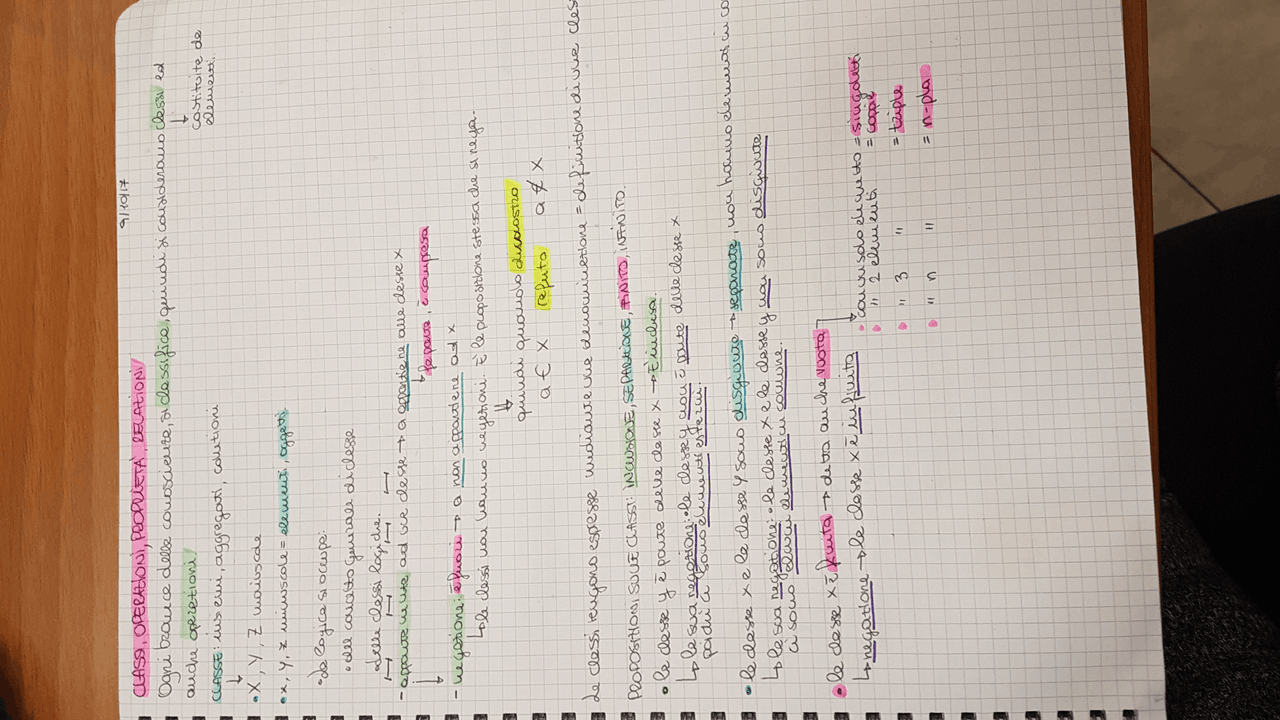 9/10/17
CLASSI, OPERAZIONI, PROPRIETÀ, RELAZIONI
Ogni branca della conoscienza, si classifica, quindi si considerano classi ed
anche operazioni.
↓ costituite da
elementi.
CLASSE: insiemi, aggregati, collezioni
↓
• X, Y, Z maiuscole
• x, y, z minuscole = elementi, oggetti
• la logica si occupa:
• del concetto generale di classe
• delle classi logiche.
- appartenenza ad una classe → a appartiene alla classe x
↳ fa parte, è compresa
- negazione: è fuori → a non appartiene ad x
↳ le classi non hanno negazioni. È la proposizione stessa che si nega.
⇓
quindi quando dimostro
a ∈ X refuto a ∉ X
Le classi vengono espresse mediante una denominazione = definizione di una class
PROPOSIZIONI SULLE CLASSI: INCLUSIONE, SEPARAZIONE, FINITO, INFINITO.
• la classe y è parte della classe x → È inclusa.
↳ la sua negazione: • la classe y non è parte della classe x
poichè ci sono elementi esterni.
• la classe x e la classe y sono disgiunte → separate, non hanno elementi in co
↳ la sua negazione: • la classe x e la classe y non sono disgiunte
ci sono alcuni elementi in comune.
• la classe x è finita → detta anche vuota
↳ negazione → la classe x è infinita
• con un solo elemento = singoletti
• " 2 elementi = coppie
• " 3 " = triple
• " n " = n-pla